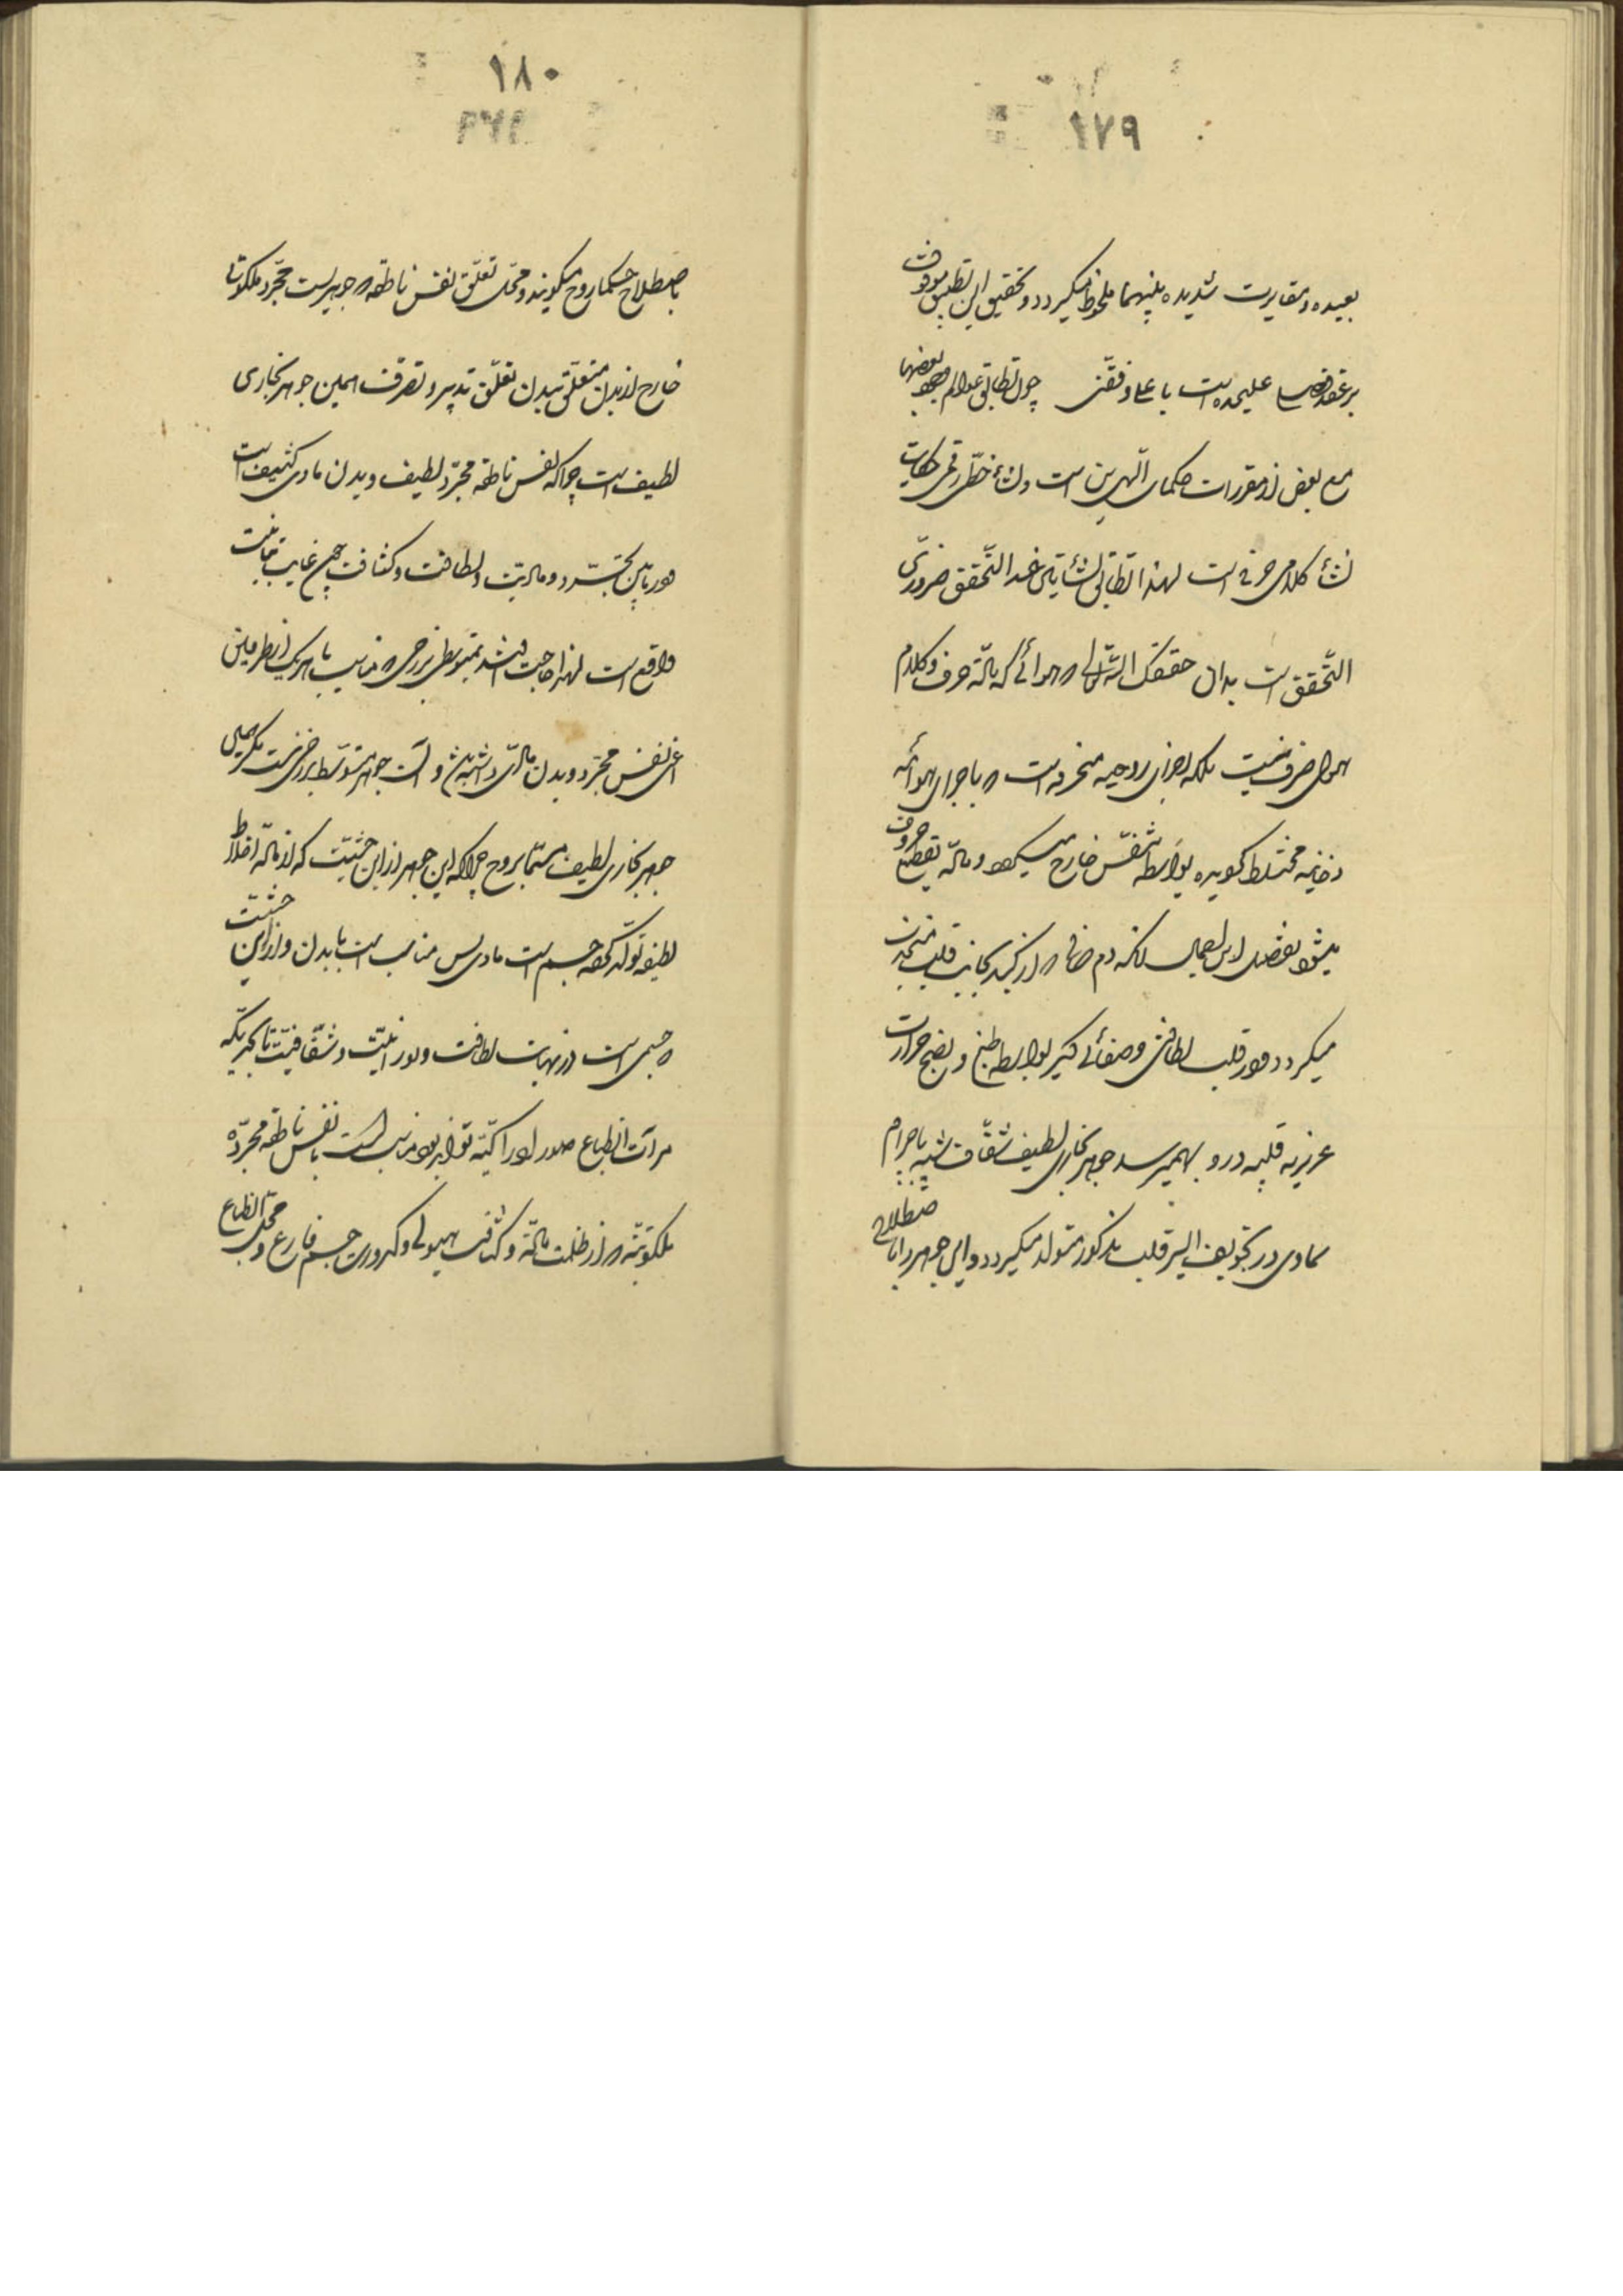 ۱۷۹
بعیده و مغایرت شدیده بینهما ملحوظ میگردد و تحقیق این تطبیق موقوف
بر عقد علیحده است چون تطابق عوالم بعضها
مع بعض از مقررات حکمای الهیین است و نشأ خطی رقمی حکایت
نشأ کلامی حرفی است لهذا تطابق نشأتین عند التحقق ضروری
التحقق است بدان حققک الله تعالی که هوائی که مادّه حرف و کلام
هوای صرف نیست بلکه اجزای روحیه منحرفه است که باجزای هوائیه
دخانیه مختلط گردیده بواسطه تنفّس خارج میشود و مادّه تقطیع حروف
میشود تفصیل این اجمال آنکه دم صافی که از کبد بجانب قلب منجذب
میگردد در قلب لطافتی و صفائی دیگر بواسطه طبخ و نضج حرارت
غریزیه قلبیه در او بهمیرسد جوهر بخاری لطیف شفّاف شبیه باجرام
سماوی در تجویف ایسر قلب مذکور متولد میگردد و این جوهر را باصطلاح
۱۸۰
باصطلاح حکما روح میگویند و محلّ تعلّق نفس ناطقه که جوهریست مجرّد ملکوتی
خارج از بدن متعلّق ببدن تعلّق تدبیر و تصرّف همین جوهر بخاری
لطیف است چرا که نفس ناطقه مجرّد لطیف و بدن مادی کثیف است
و در مابین تجرّد و مادیّت و لطافت و کثافت چون غایت تباینت
واقع است لهذا حاجت افتد بمتوسطی برزخی که مناسب با هریک از طرفین
اعنی نفس مجرّد و بدن مادّی داشته باشد و آن جوهر متوسّط برزخی نیست مگر همین
جوهر بخاری لطیف مسمّا بروح چرا که این جوهر از این حیثیّت که از مادّه اخلاط
لطیفه تولّد کرده جسم است مادی پس مناسب است با بدن و از این حیثیّت
که جسمی است در نهایت لطافت و نورانیّت و شفّافیّت تا بحدیکه
مرآت انطباع صور ادراکیّه تواند بود مناسب است با نفس ناطقه مجرّده
ملکوتیّه که از ظلمت مادّه و کثافت هیولی و کدورت جسم فارغ و محلّ انطباع